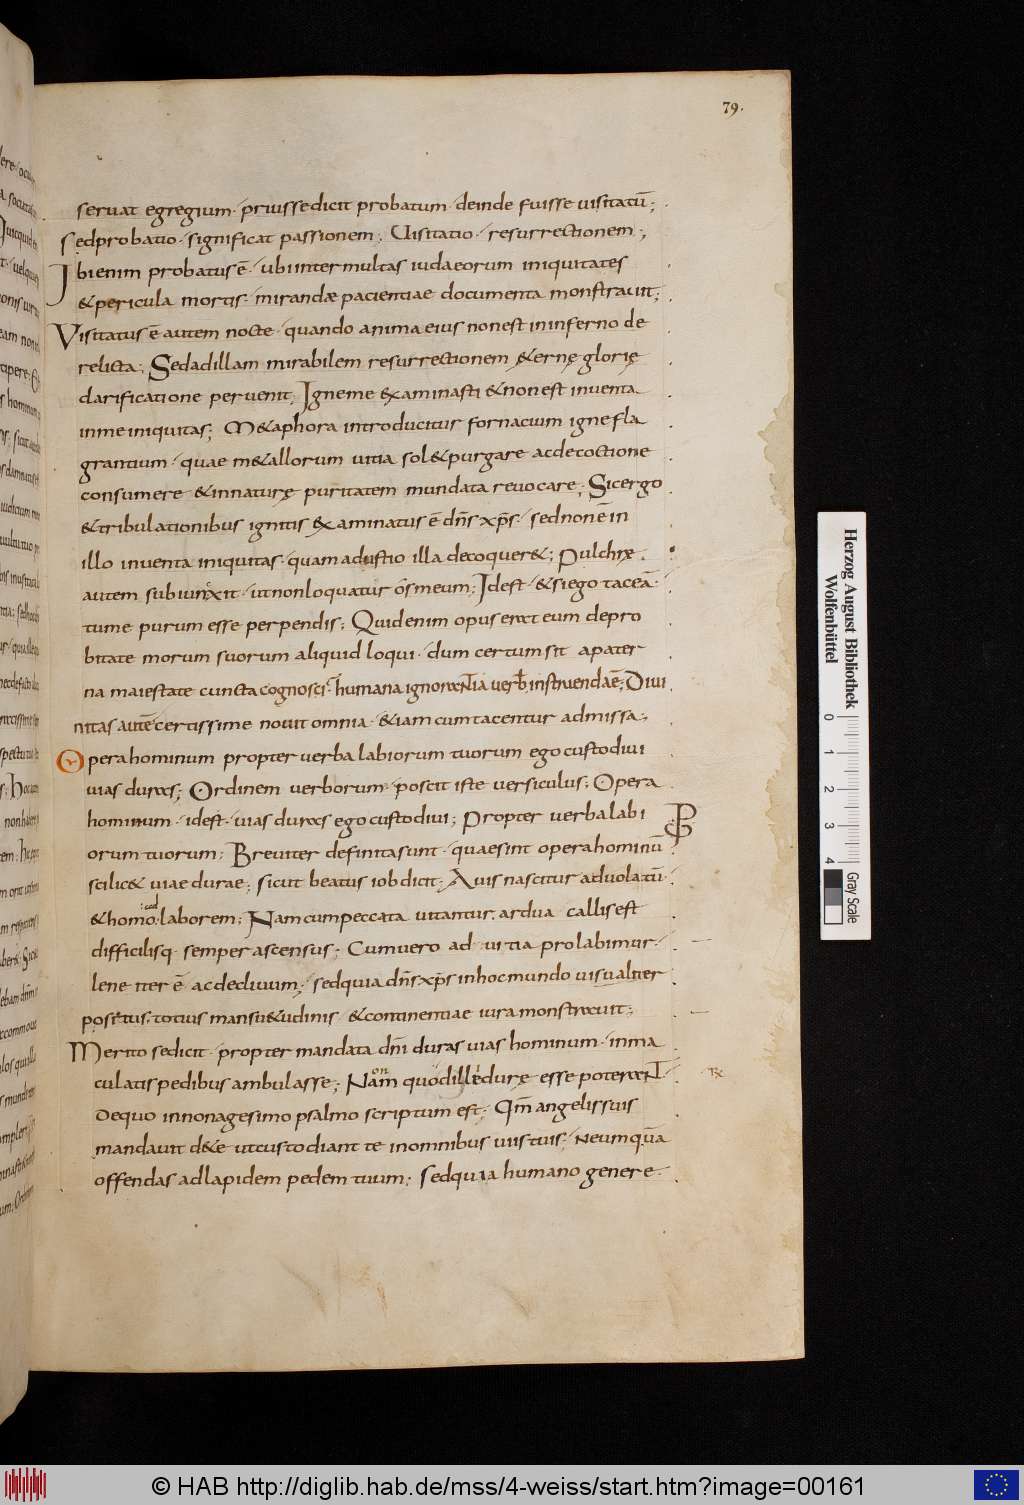 79.
seruat egregium· prius se dicit probatum· deinde fuisse uisitatū;
sed probatio· significat passionem; Uisitatio· resurrectionem;
Ibi enim probatus ē· ubi inter multas iudaeorum iniquitates
& pericula mortis· mirandæ pacientiae documenta monstrauit;
Visitatus ē autem nocte· quando anima eius non est in inferno de
relicta; Sed ad illam mirabilem resurrectionem &ernę glorię
clarificatione peruenit; Igne me examinasti & non est inuenta
in me iniquitas; M&aphora introducitur fornacium igne fla
grantium· quae m&allorum uitia sol& purgare ac decoctione
consumere & in naturę puritatem mundata reuocare; Sic ergo
& tribulationibus ignitis examinatus ē dn̄s xp̄s· sed non ē in
illo inuenta iniquitas· quam adustio illa decoquer&; Pulchrę
autem subiunxit· ut non loquatur ōs meum; Id est· & si ego taceā·
tu me purum esse perpendis; Quid enim opus erat eum de pro
bitate morum suorum aliquid loqui· dum certum sit a pater
na maiestate cuncta cognosci· humana ignorantia uerb; instruenda ē; Diui
nitas autē certissime nouit omnia· & iam cum tacentur admissa;
Opera hominum propter uerba labiorum tuorum ego custodiui
uias duras; Ordinem uerborum· poscit iste uersiculus; Opera
hominum· id est· uias duras ego custodiui; Propter uerba labi
orum tuorum; Breuiter definita sunt· quae sint opera hominū
scilic& uiae durae; sicut beatus iob dicit; Auis nascitur ad uolatū·
:ad
& homo: laborem; Nam cum peccata uitantur, ardua callis est
difficilisq· semper ascensus; Cum uero ad uitia prolabimur·
lene iter ē· ac decliuum; sed quia dn̄s xp̄s in hoc mundo uisualiter
positus, totius mansu&udinis & continentiae iura monstrauit;
Merito se dicit· propter mandata dn̄i duras uias hominum· inma
culatis pedibus ambulasse; Nam quod ille durę esse poterant
De quo in nonagesimo psalmo scriptum est; Qm̄ angelis suis
mandauit de te ut custodiant te in omnibus uiis tuis; Ne umquā
offendas ad lapidem pedem tuum; sed quia humano genere·
Herzog August Bibliothek
Wolfenbüttel
0 1 2 3 4
Gray Scale
© HAB http://diglib.hab.de/mss/4-weiss/start.htm?image=00161